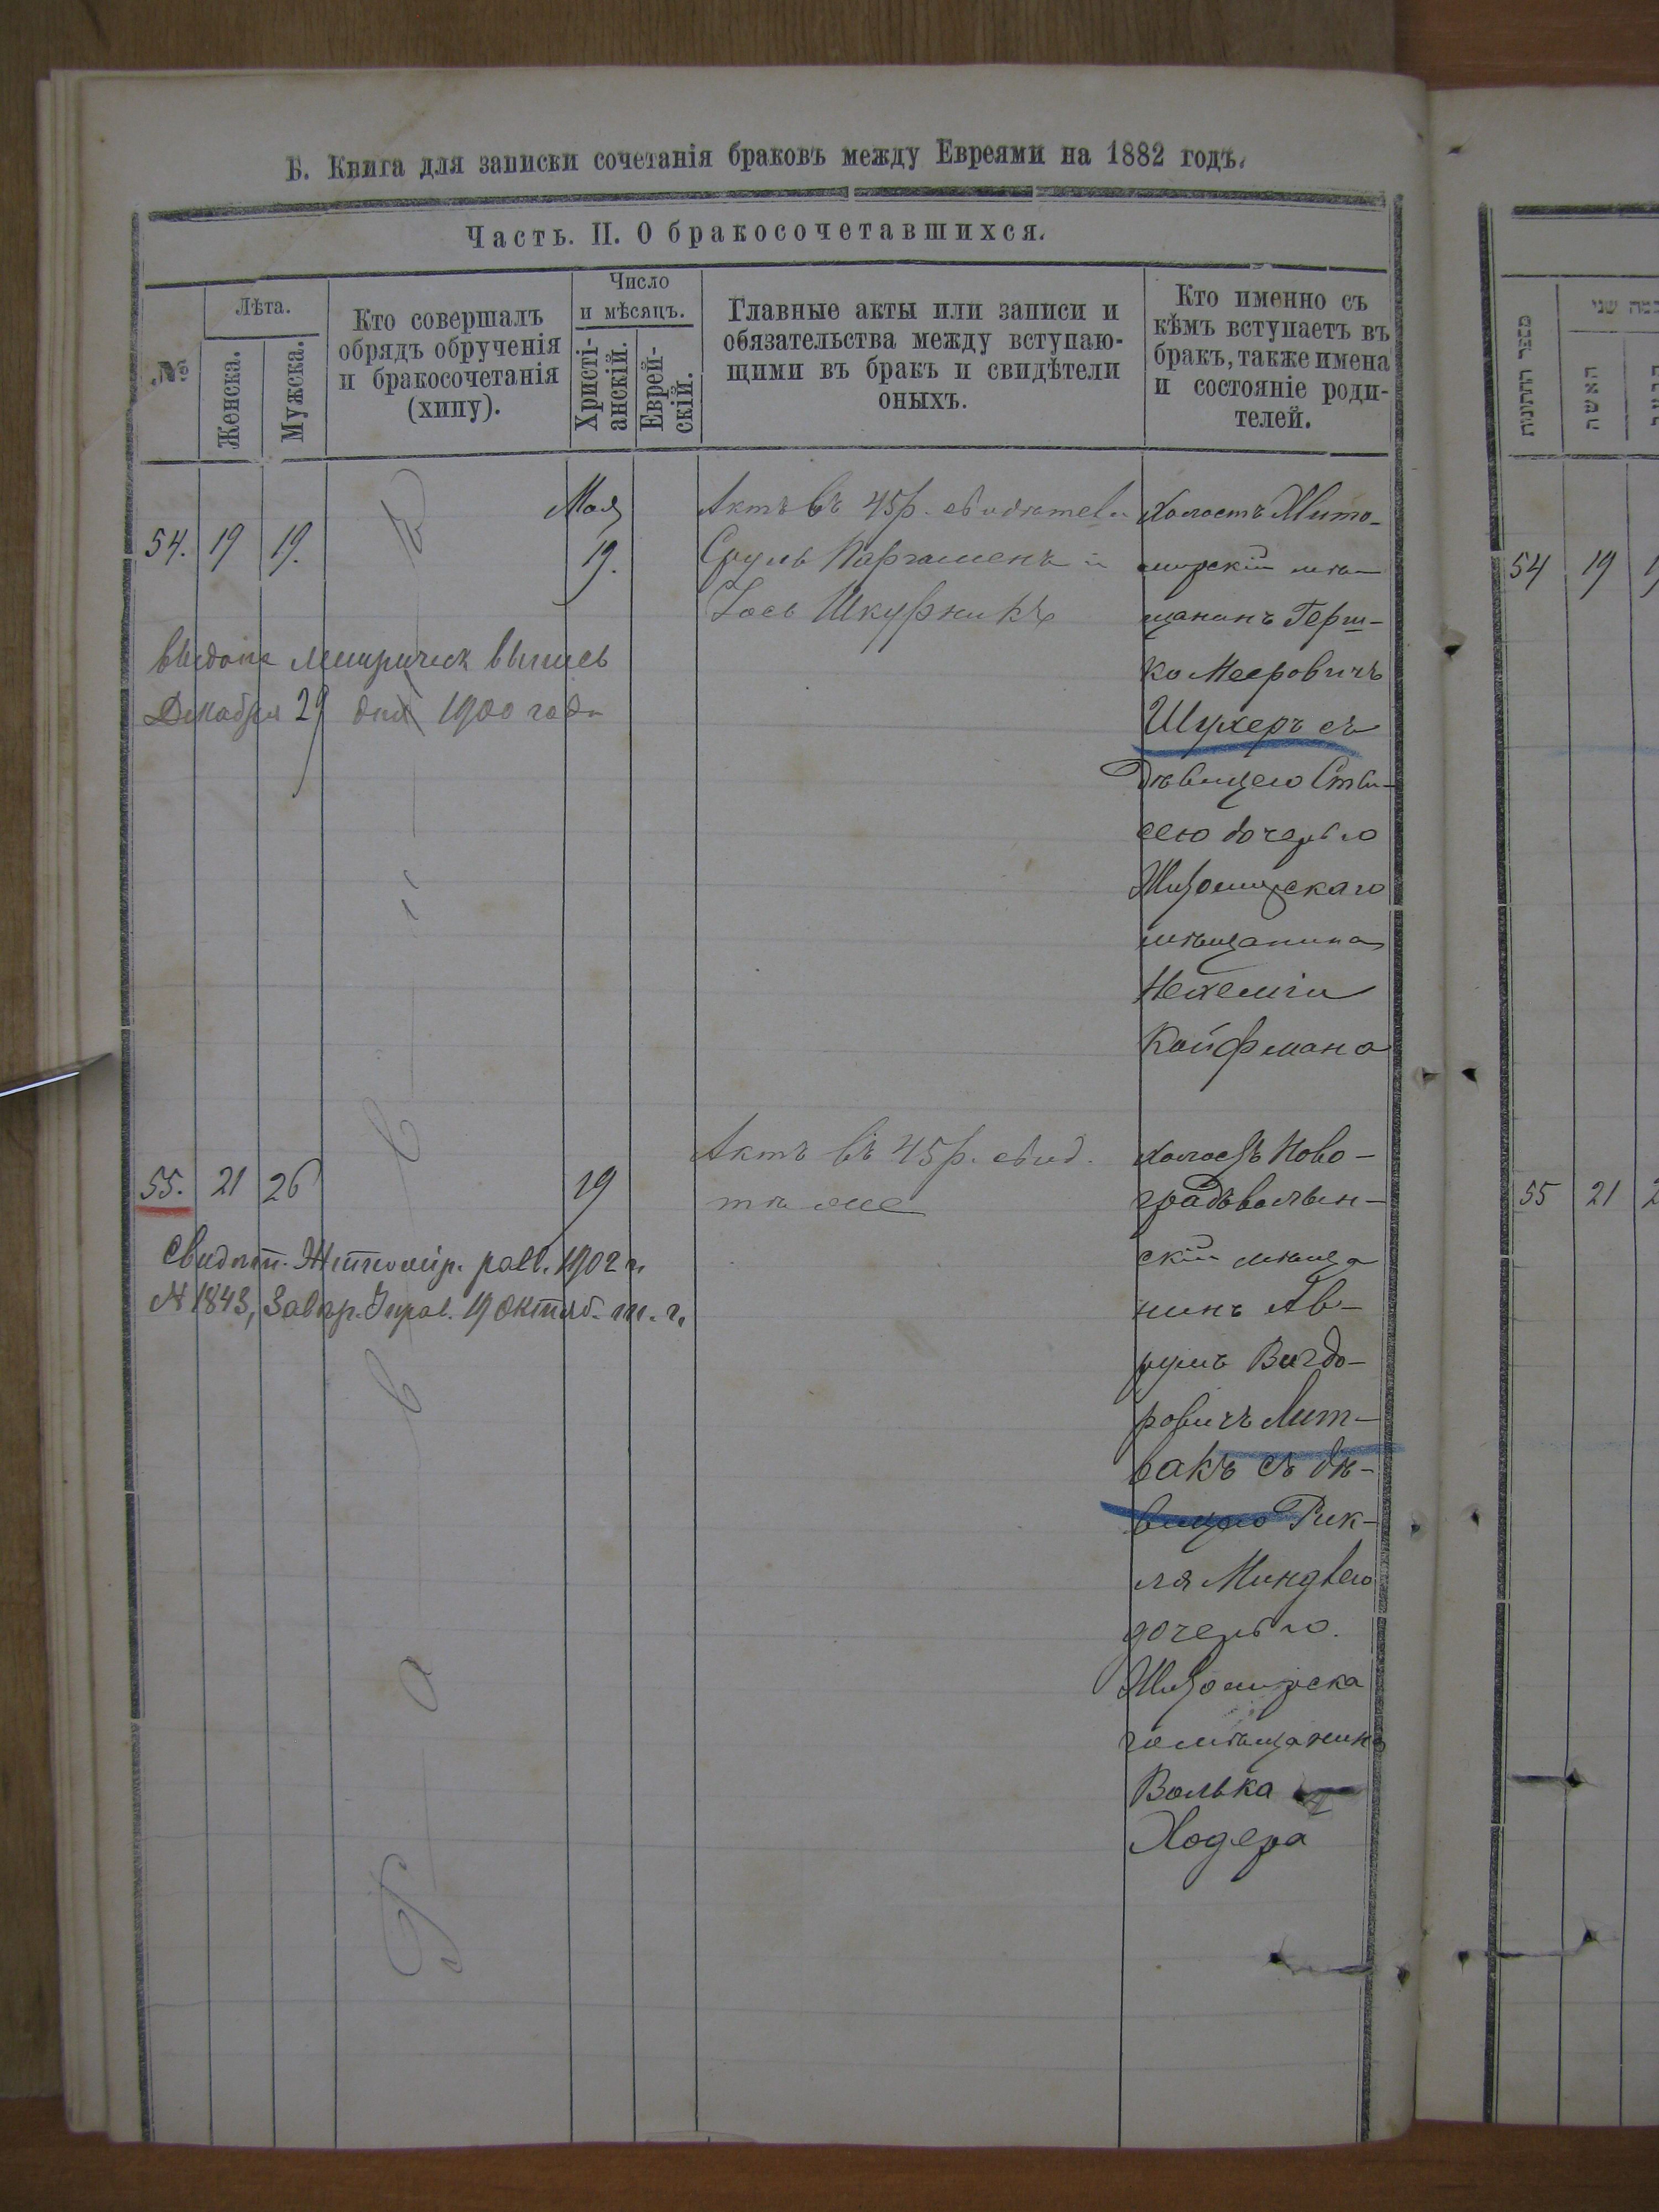 Б. Книга для записки сочетанія браковъ между Евреями на 1882 годъ.
Часть. II. О бракосочетавшихся.
№
Лѣта.
Женска.
Мужска.
Кто совершалъ
обрядъ обрученія
и бракосочетанія
(хипу).
Число
и мѣсяцъ.
Христі-
анскій.
Еврей-
скій.
Главные акты или записи и
обязательства между вступаю-
щими въ бракъ и свидѣтели
оныхъ.
Кто именно съ
кѣмъ вступаетъ въ
бракъ, также имена
и состояніе роди-
телей.
54. 19 19.
Мая
19.
Актъ въ 45 р. свидѣтели
Сруль Паргаменъ и
Іось Шкурникъ
Холостъ Жито-
мирскій мѣ-
щанинъ Герш-
ко Мееровичъ
Шухеръ съ
дѣвицею
сею дочерью
Житомирскаго
мѣщанина
Нехеміи
Койфмана
выдана метрическ выпись
Декабря 29 дня 1900 года
Р а в в и н
55. 21 26
19
Актъ въ 45 р. свид.
тѣ же
Холостъ Ново-
градъволын-
скій мѣща
нинъ Ав-
румъ Вигдо-
ровичъ Лит-
вакъ съ дѣ-
вицею Рик-
ля Миндлею
дочерью
Житомирска
го мѣщанина
Волька
Ходера
Свидѣт. Житомір. равв. 1902 г.
№ 1843, Завѣр. Управ. 19 Октяб. т. г.
מספר החתונות
כמה שני
האשה
54 19
55 21